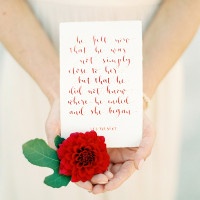 he felt now
that he was
not simply
close to her,
but that he
did not know
where he ended
and she began